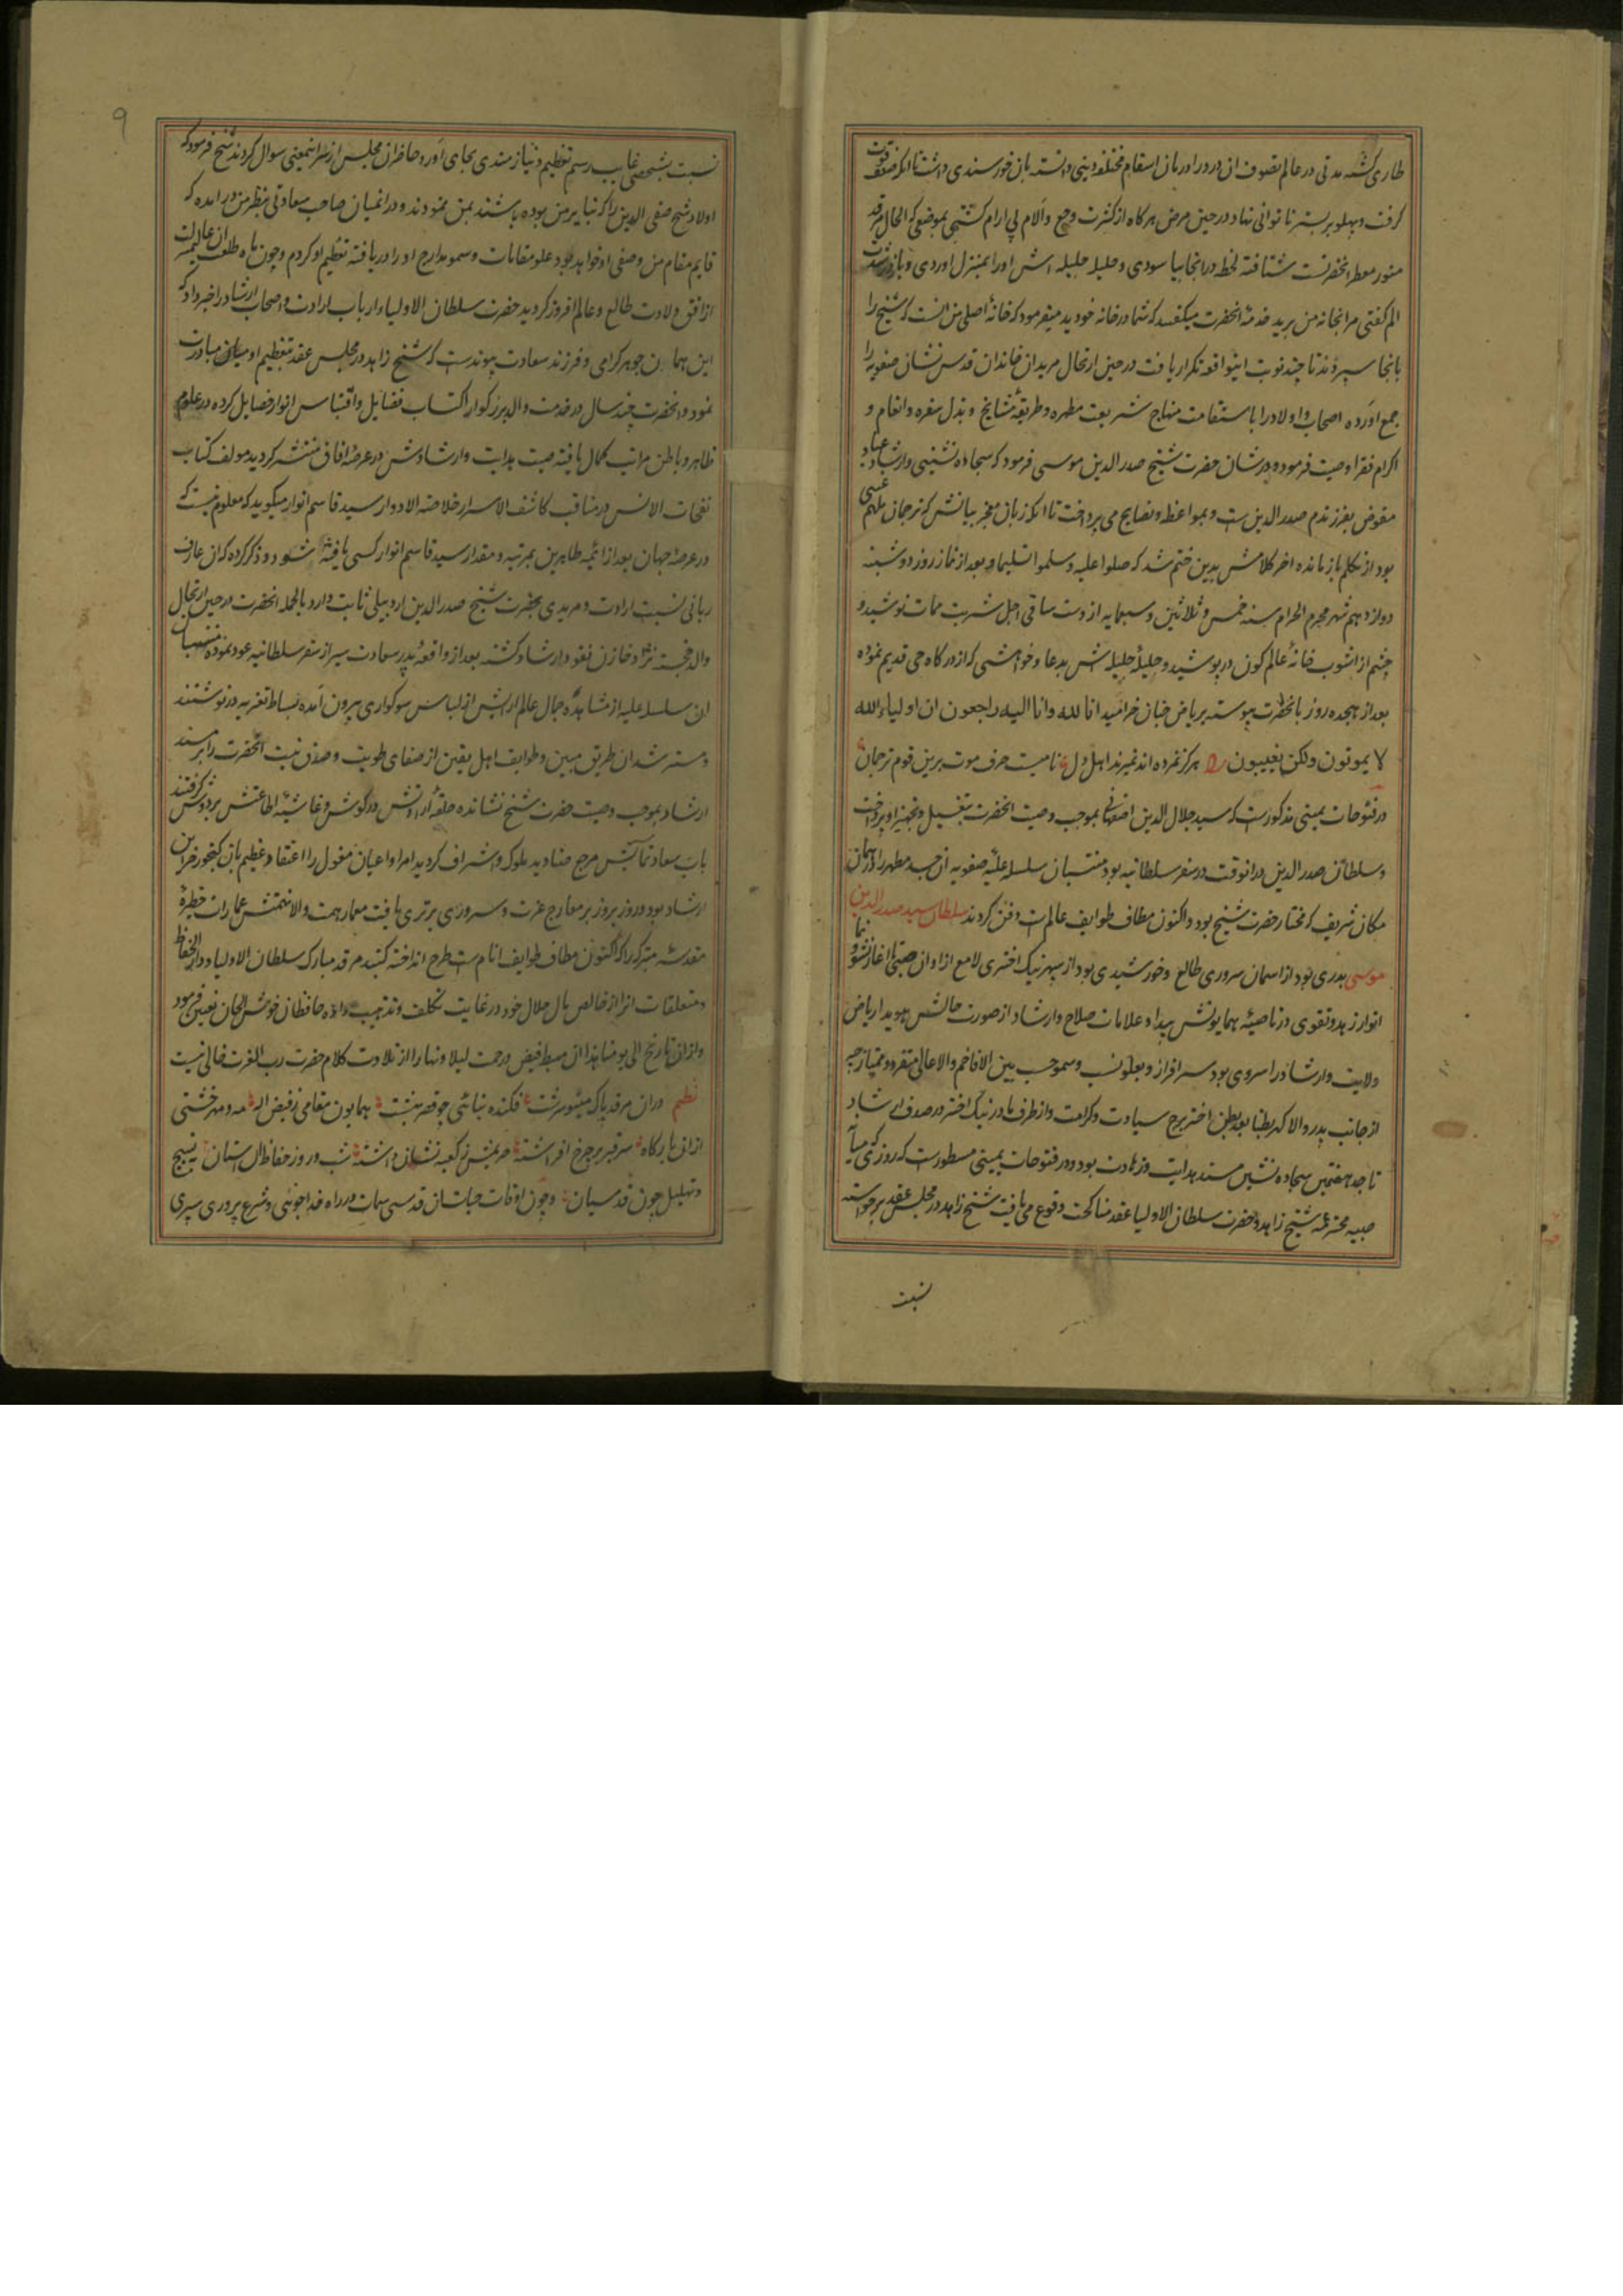 طاری کشته مدتی در عالم تصوف ان درد را درمان اسقام مختلفه دینی دانسته بان خورسندی داشت تا انکه ضعف قوت
کرفت و پهلو بر بستر ناتوانی نهاد و در حین مرض هرکاه از کثرت وجع و آلام بی ارام کشتی بموضعی که الحال مرقد
منور معطر انحضرتست شتافته لحظه در انجا بیاسودی و حلیله جلیله اش او را بمنزل اوردی و باز در شدت
الم کفتی مرا بخانه من برید خدمه انحضرت میکفتند که شما در خانه خودید میفرمود که خانهٔ اصلی من انست که شیخ را
بانجا سپردند تا چند نوبت اینواقعه تکرار یافت در حین ارتحال مریدان خاندان قدس نشان صفویه را
جمع آورده اصحاب و اولاد را باستقامت منهاج شریعت مطهره و طریقهٔ مشایخ و بذل سفره و انعام و
اکرام فقرا وصیت فرمود و در شان حضرت شیخ صدر الدین موسی فرمود که سجاده نشینی و ارشاد عباد
مفوض بفرزندم صدر الدین ست و بمواعظ و نصایح می پرداخت تا انکه زبان معجز بیانش که ترجمان ملهم غیبی
بود از تکلم باز مانده اخر کلامش بدین ختم شد که صلوا علیه وسلموا تسلیما و بعد از نماز روز دوشنبه
دوازدهم شهر محرم الحرام سنه خمس و ثلاثین و سبعمایه از دست ساقی اجل شربت ممات نوشید و
چشم از اشوب خانهٔ عالم کون در پوشید و حلیلهٔ جلیله اش بدعا و خواهشی که از درکاه حی قدیم نموده
بعد از هجده روز بانحضرت پیوسته بریاض جنان خرامید انا لله وانا الیه راجعون ان اولیاء الله
لا یموتون ولکن یغیبون هرکز نمرده اند نمیرند اهل دل نامیست حرف موت برین قوم ترجمان
در فتوحات یمینی مذکورست که سید جلال الدین اصفهانی بموجب وصیت انحضرت بتغسیل و تجهیز او پرداخت
و سلطان صدر الدین در انوقت در سفر سلطانیه بود منتسبان سلسله علیهٔ صفویه ان جسد مطهر را در همان
مکان شریف که مختار حضرت شیخ بود و اکنون مطاف طوایف عالم است دفن کردند سلطان سید صدر الدین
موسی بدری بود از اسمان سروری طالع و خورشیدی بود از سپهر نیک اختری لامع از اوان صبی تا اغاز نشو و نما
انوار زهد و تقوی در ناصیهٔ همایونش پیدا و علامات صلاح و ارشاد از صورت حالش هویدا ریاض
ولایت و ارشاد را سروی بود سرافراز و بعلو نسب و سمو حسب بین الافاخم والاعالی متفرد و ممتاز چه
از جانب پدر والا کهر بطنا بعد بطن اختر برج سیادت و کرامت و از طرف مادر نیک اختر در صدف ارشاد
تا جد هفتمین سجاده نشین مسند هدایت و زهادت بود و در فتوحات یمینی مسطورست که روزی که میانه
صبیه محترمهٔ شیخ زاهد و حضرت سلطان الاولیا عقد مناکحت وقوع می یافت شیخ زاهد در مجلس عقد برخواسته
نسبت
۹
نسبت بشخصی غایب رسم تعظیم و نیازمندی بجای آورد حاضران مجلس از سر اینمعنی سوال کردند شیخ فرمود که
اولاد شیخ صفی الدین را که نبایر من بوده باشند بمن نمودند و در انمیان صاحب سعادتی بنظر من در امده که
قایم مقام من و صفی او خواهد بود علو مقامات و سمو مدارج او را دریافته تعظیم او کردم و چون ماه طلعت ان عالیمرتبت
از افق ولادت طالع و عالم افروز کردید حضرت سلطان الاولیا ارباب ارادت و اصحاب ارشاد را خبر داد که
این همان جوهر کرامی و فرزند سعادت پیوندست که شیخ زاهد در مجلس عقد بتعظیم او میان مبادرت
نمود و انحضرت چند سال در خدمت والد بزرکوار اکتساب فضایل و اقتباس انوار خصایل کرده در علوم
ظاهر و باطن مراتب کمال یافته صیت هدایت و ارشادش در عرصهٔ افاق منتشر کردید مولف کتاب
نفحات الانس در مناقب کاشف الاسرار خلاصة الادوار سید قاسم انوار میکوید که معلوم نیست که
در عرصهٔ جهان بعد از ائمهٔ طاهرین بمرتبه و مقدار سید قاسم انوار کسی یافته شود و ذکر کرده که ان عارف
ربانی نسبت ارادت و مریدی بحضرت شیخ صدر الدین اردبیلی ثابت دارد بالجمله انحضرت در حین ارتحال
والد خجسته نژاد خازن نقود ارشاد کشته بعد از واقعهٔ پدر سعادت سیر از سفر سلطانیه عود نموده منتسبان
ان سلسلهٔ علیه از مشاهده جمال عالم ارایش از لباس سوکواری بیرون آمده بساط تعزیه در نوشتند
و مسترشدان طریق مبین و طوایف اهل یقین از صفای طویت و صدق نیت انحضرت را بر مسند
ارشاد بموجب وصیت حضرت شیخ نشانده حلقهٔ ارادتش در کوش و غاشیهٔ اطاعتش بر دوش کرفتند
باب سعادتمآبش مرجع صنادید ملوک و اشراف کردید امرا و اعیان مغول را اعتقاد عظیم بان کنجور خزاین
ارشاد بود و روز بروز بر معارج عزت و سروری برتری یافت معمار همت والانهمتش عمارات حظیرهٔ
مقدسهٔ متبرکه را که اکنون مطاف طوایف انام ست طرح انداخته کنبد مرقد مبارک سلطان الاولیا و دار الحفاظ
و متعلقات انرا از خالص مال حلال خود در غایت تکلف و تذهیب داده حافظان خوش الحان تعیین فرمود
و از ان تاریخ الی یومنا هذا ان مهبط فیض و رحمت لیلا و نهارا از تلاوت کلام حضرت رب العزت خالی نیست
نظم دران مرقد پاک مینو سرشت فکنده بنائی چو قصر بهشت همایون مقامی ز فیض اله مه و مهر خشتی
ازان بارکاه سر قبه بر چرخ افراشته حریمش ز کعبه نشان داشته شب و روز حفاظ ان استان به تسبیح
و تهلیل چون قدسیان و چون اوقات حیات ان قدسی سمات در راه خداجوئی و شرع پروری سپری